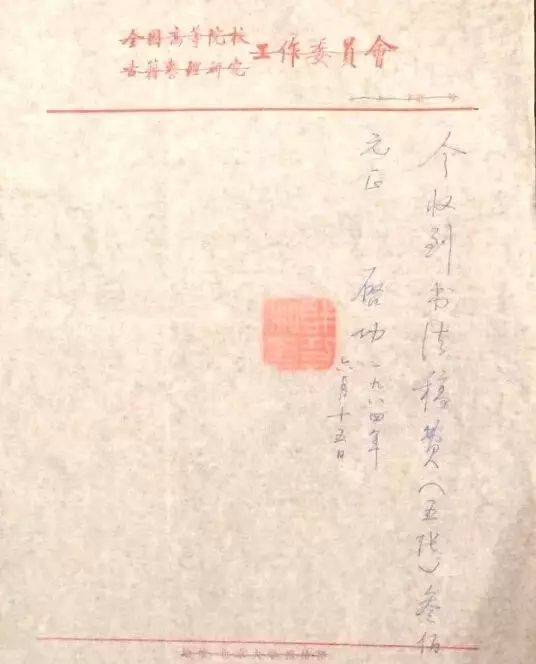 全国高等院校
古籍整理研究工作委員會
今收到书法稿费（五张）叁佰
元正
启功 一九八四年
六月十五日